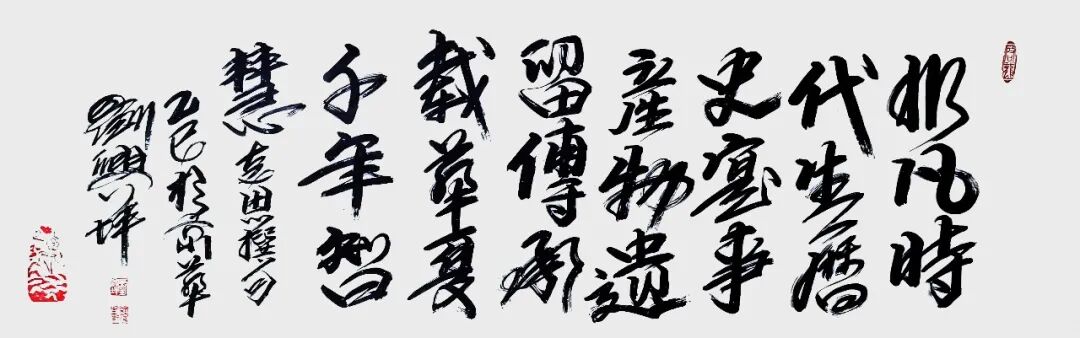 非凡時
代生曆
史寔事
産物遺
留傳承
載華夏
千年智
慧 撰句
乙巳於京華
劉興坪